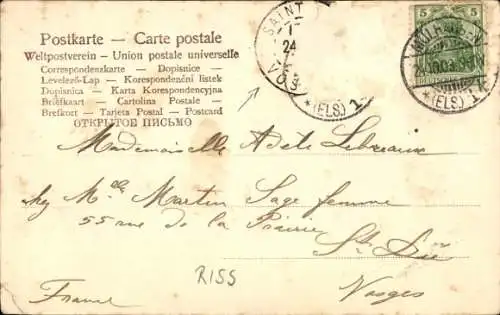 Postkarte – Carte postale
Weltpostverein – Union postale universelle
Correspondenzkarte – Dopisnice
Levelező-Lap – Korespondenční lístek
Dopisnica – Karta Korespondencyjna
Briefkaart – Cartolina Postale
Brefkort – Tarjeta Postal – Postcard
ОТКРЫТОЕ ПИСЬМО
SAINT
24
5
5
*(ELS.) 1
*(ELS.) 1
Mademoiselle Adèle
chez Me Martin Sage femme
55 rue de la Prairie
St Dié
RISS
France
Vosges